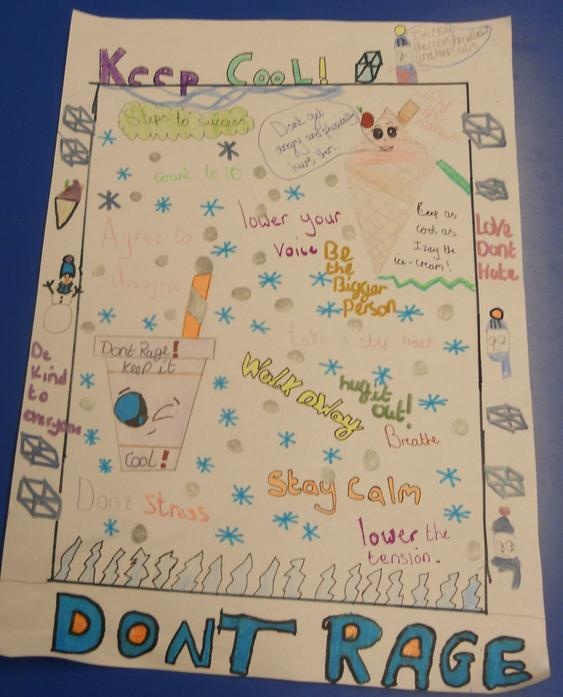 Keep CooL!
I'm Mike
the marshmellow
and keep calm
Steps to success
Dont get
angry and physically
hurt them.
Izzy
the
icecream
count to 10
lower your
voice
Keep as
cool as
Izzy the
ice-cream!
Love
Dont
Hate
Agree to
disagree
Be
the
Bigger
Person
take a step back
Dont Rage!
Keep it
Cool!
Walk away
hug it
out!
Breathe
Be
Kind
to
everyone
Stay Calm
Dont Stress
lower the
tension.
DONT RAGE